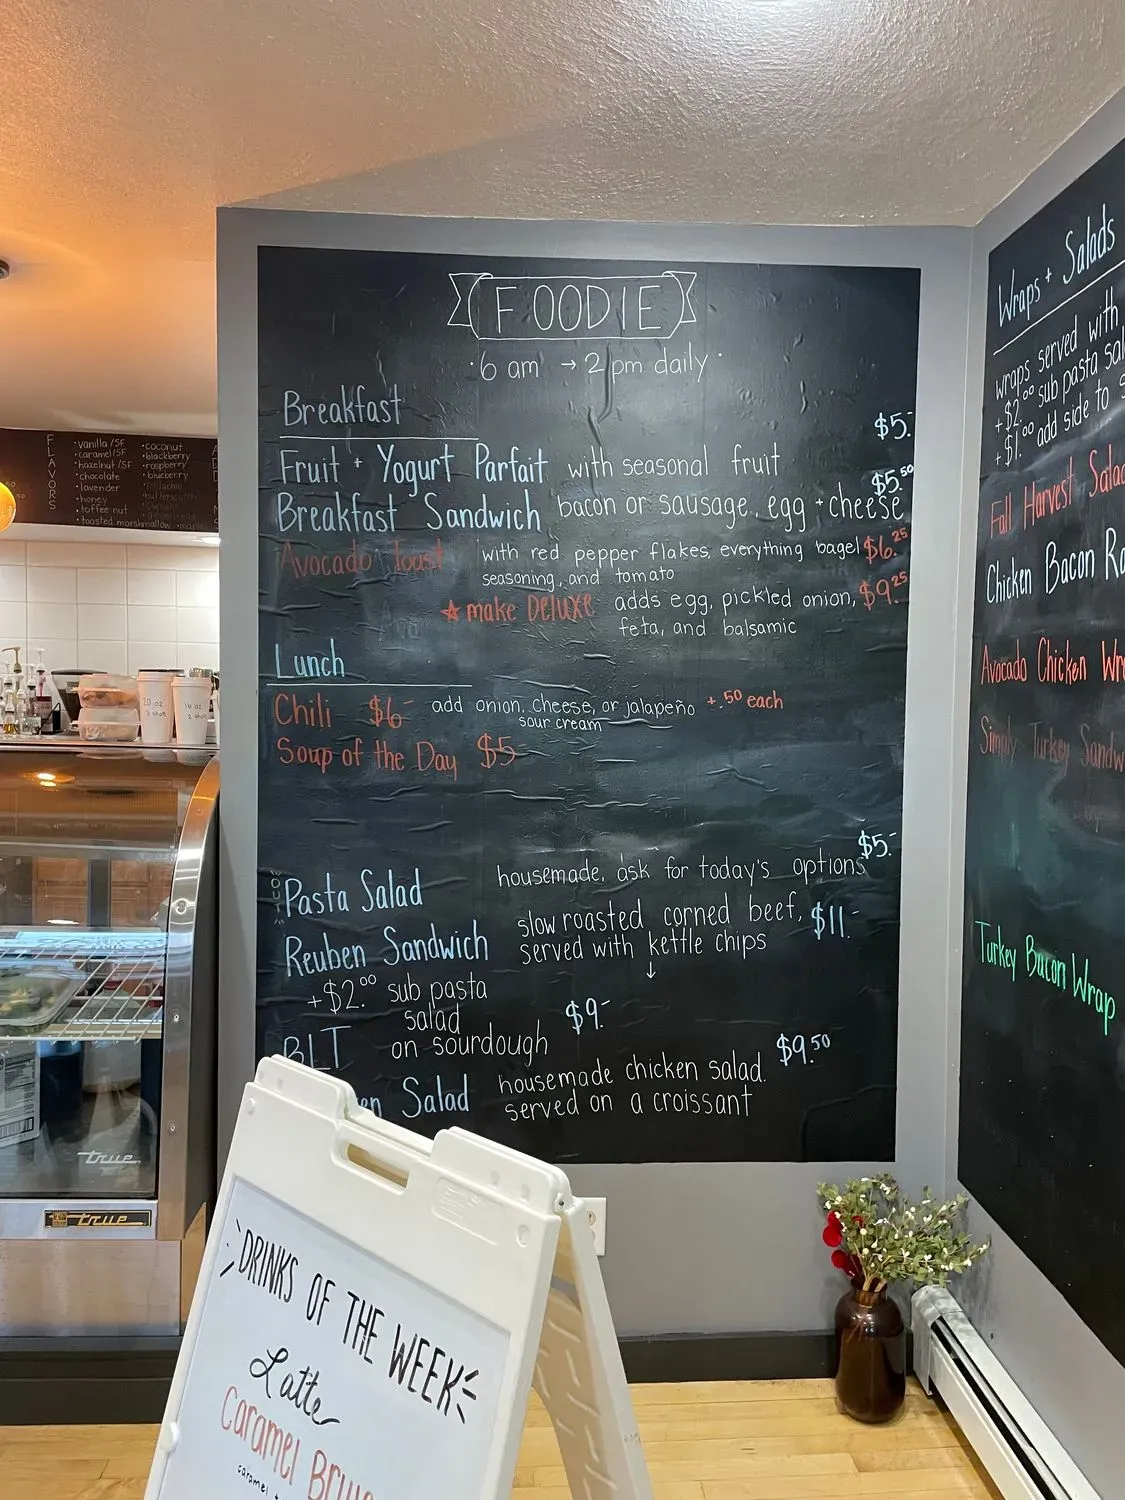 FOODIE
· 6 am → 2 pm daily ·
Breakfast
Fruit + Yogurt Parfait with seasonal fruit $5.-
Breakfast Sandwich bacon or sausage, egg + cheese $5.50
Avocado Toast with red pepper flakes, everything bagel $6.25
seasoning, and tomato
★ make DELUXE adds egg, pickled onion, $9.25
feta, and balsamic
Lunch
Chili $6- add onion, cheese, or jalapeño +.50 each
sour cream
Soup of the Day $5-
Pasta Salad housemade, ask for today's options $5.-
Reuben Sandwich slow roasted corned beef, $11.-
served with kettle chips
↓
+$2.00 sub pasta
salad
BLT on sourdough $9.-
Salad housemade chicken salad $9.50
served on a croissant
Wraps + Salads
wraps served with
+$2.00 sub pasta
+$1.00 add side to
Fall Harvest
Chicken Bacon
Avocado Chicken
Simply Turkey
Turkey Bacon Wrap
FLAVORS
·vanilla/SF
·caramel/SF
·hazelnut/SF
·chocolate
·lavender
·honey
·toffee nut
·toasted marshmallow
·coconut
·blackberry
·raspberry
·blueberry
20 oz
3 shots
16 oz
2 shots
true
true
DRINKS OF THE WEEK
Latte
Caramel
caramel